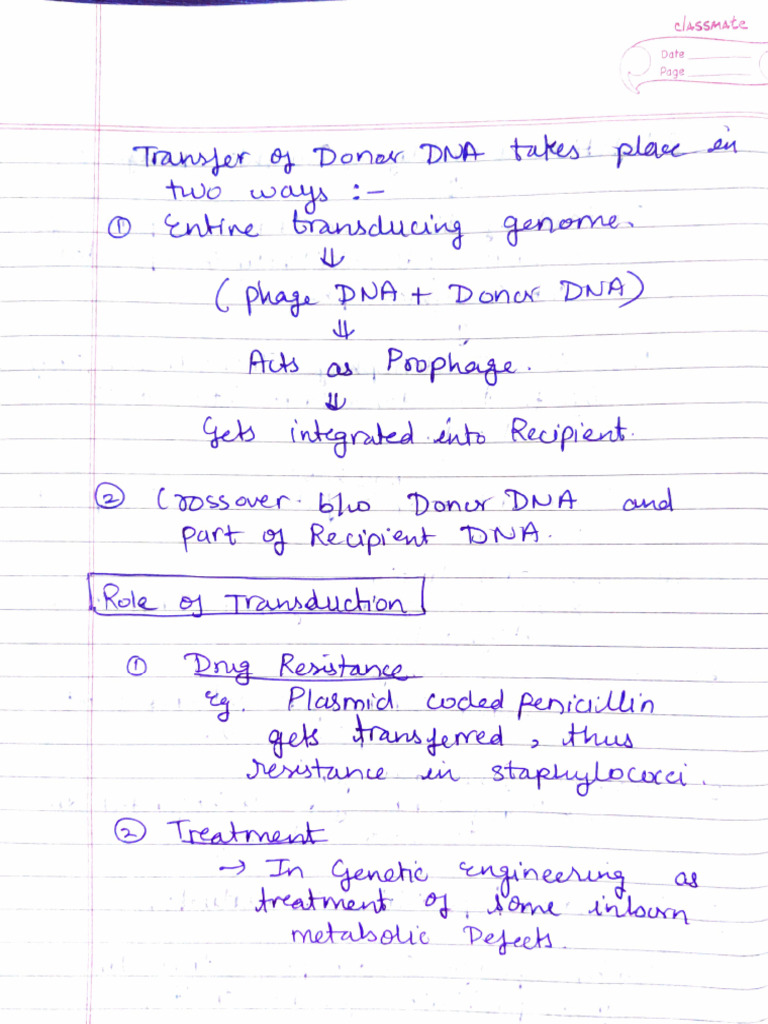 classmate
Date
Page
Transfer of Donor DNA takes place in
two ways :-
① Entire transducing genome.
⇓
( Phage DNA + Donor DNA)
⇓
Acts as Prophage.
⇓
Gets integrated into Recipient.
② Crossover b/w Donor DNA and
part of Recipient DNA.
Role of Transduction
① Drug Resistance
eg. Plasmid coded penicillin
gets transferred, thus
resistance in staphylococci.
② Treatment
→ In Genetic Engineering as
treatment of some inborn
metabolic Defects.